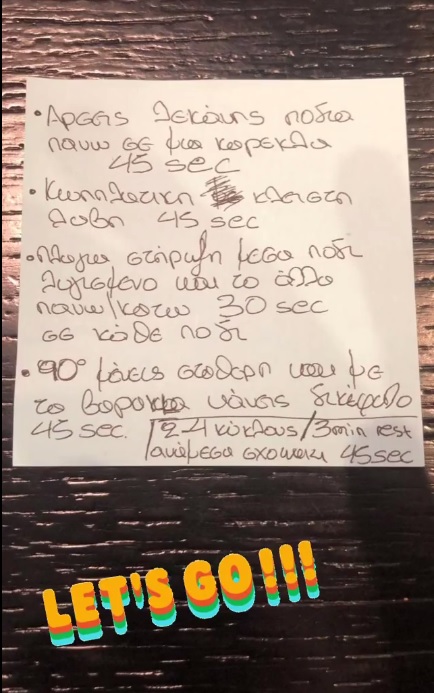 • Αρσεις λεκάνης ποδια
πανω σε μια καρεκλα
45 sec
• Κωπηλατικη κλειστη
λαβη 45 sec
• Πλαγια στήριξη μεσα ποδι
λυγισμενο και το άλλο
πανω/κατω 30 sec
σε κάθε ποδι
• 90° κάνεις σταθερη και με
το βαρακι κάνεις δικέφαλο
45 sec.
2-4 κύκλους/3min rest
ανάμεσα σχοινακι 45sec
LET'S GO!!!